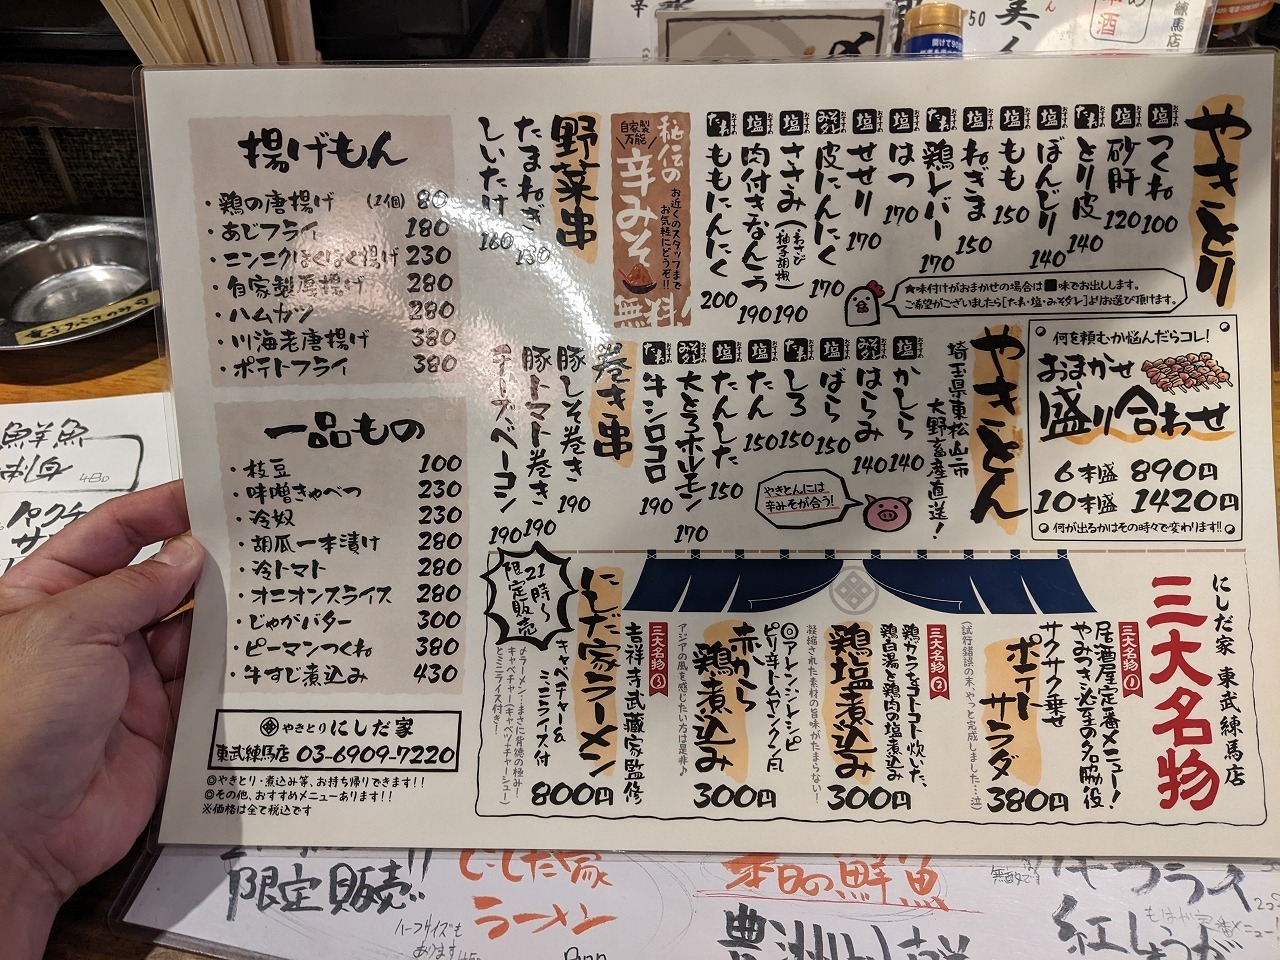 やきとり
塩 おすすめ つくね 100
塩 おすすめ 砂肝 120
たれ おすすめ とり皮 140
塩 おすすめ ぼんじり 140
塩 おすすめ もも 150
塩 おすすめ ねぎま 150
たれ おすすめ 鶏レバー 170
塩 おすすめ はつ 170
塩 おすすめ せせり 170
みそダレ おすすめ 皮にんにく 170
塩 おすすめ ささみ(わさび 柚子胡椒) 190
塩 おすすめ 肉付きなんこつ 190
たれ おすすめ ももにんにく 200
★味付けがおまかせの場合は■味でお出しします。
ご希望がございましたら[たれ・塩・みそダレ]よりお選び頂けます。
秘伝の
自家製
万能
辛みそ
お近くのスタッフまで
お気軽にどうぞ!!
無料!
野菜串
たまねぎ 130
しいたけ 160
何を頼むか悩んだらコレ!
おまかせ
盛り合わせ
6本盛 890円
10本盛 1420円
何が出るかはその時々で変わります!!
やきとん
埼玉県東松山市
大野畜産直送!
塩 おすすめ かしら 140
みそダレ おすすめ はらみ 140
塩 おすすめ ばら 150
たれ おすすめ しろ 150
塩 おすすめ たん 150
塩 おすすめ たんした 150
みそダレ おすすめ 大とろホルモン 170
たれ おすすめ 牛シロコロ 190
やきとんには
辛みそが合う!
巻き串
豚しそ巻き 190
豚トマト巻き 190
チーズベーコン 190
にしだ家 東武練馬店
三大名物
三大名物①
居酒屋定番メニュー!
やみつき必至の名脇役
サクサク乗せ
ポテト
サラダ
(試行錯誤の末、やっと完成しました…泣)
380円
三大名物②
鶏ガラをコトコト炊いた、
鶏白湯と鶏肉の塩煮込み
鶏塩煮込み
凝縮された素材の旨味がたまらない!
300円
◎アレンジレシピ
ピリ辛トムヤンクン風
赤から
鶏煮込み
アジアの風を感じたい方は是非♪
300円
三大名物③
吉祥寺武蔵家監修
にしだ家ラーメン
キャベチャー&
ミニライス付
800円
〆ラーメン…まさに背徳の極み!
キャベチャー(キャベツ+チャーシュー)
とミニライス付き!
21時~
限定販売
揚げもん
・鶏の唐揚げ (1個) 80
・あじフライ 180
・ニンニクほくほく揚げ 230
・自家製厚揚げ 280
・ハムカツ 280
・川海老唐揚げ 380
・ポテトフライ 380
一品もの
・枝豆 100
・味噌きゃべつ 230
・冷奴 230
・胡瓜一本漬け 280
・冷トマト 280
・オニオンスライス 280
・じゃがバター 300
・ピーマンつくね 380
・牛すじ煮込み 430
やきとり にしだ家
東武練馬店 03-6909-7220
◎やきとり・煮込み等、お持ち帰りできます!!
◎その他、おすすめメニューあります!!
※価格は全て税込です
鮮魚
限定販売!!
にしだ家
ラーメン
ハーフサイズも
あります
本日の鮮魚
紅しょうが